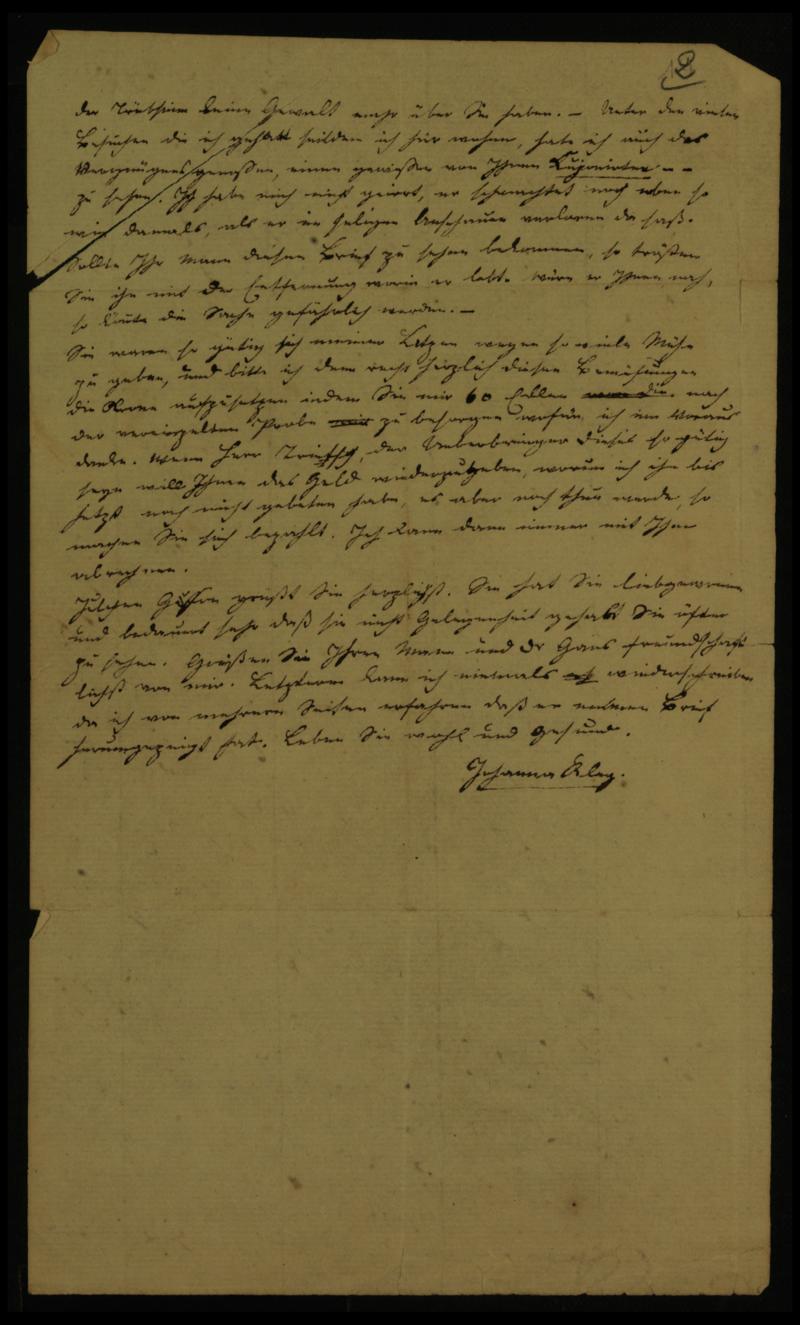 2
der Trübsinn keine Gewalt mehr über Sie haben. – Unter den vielen
Besuchen die ich gehabt seitdem ich hier wohne, habe ich auch das
Vergnügens genossen, einen gewissen von Ihnen
zu sehen. Ich habe mich nicht geirrt, er schmachtet noch eben so
wie damals, als er in seligem Anschauen verloren da saß.
Sollte Ihr Mann diesen Brief zu sehen bekommen, so trösten
Sie ihn mit der Entfernung worin er lebt. wäre er Ihnen nah,
so könnte die Sache gefährlich werden. –
Sie waren so gütig sich meiner wegen so viele Mühe
zu geben, und bitte ich denn recht herzlich diesen Bemühungen
die Krone aufzusetzen indem Sie mir 60 Ellen nach
der vereinzelten Probe zu besorgen wofür ich im Voraus
danke. Wenn Herr der Ueberbringer dieses so gütig
seyn will Ihnen das Geld wiederzugeben, worum ich ihn bis
jetzt noch nicht gebeten habe, es aber noch thun werde, so
machen Sie sich bezahlt. Ich kann dann immer mit Ihm
abrechnen.
Julchen grüßt Sie herzlichst. Sie hat Sie liebgewonnen
und bedauert sehr daß sie nicht Gelegenheit gehabt Sie öfter
zu sehen. Grüßen Sie Ihren Mann und Dr Gans freundschaft-
lichst von mir. Letzterem kann ich niemals wiederschreiben
da ich von mehrern Seiten erfahren daß er meinen Brief
herumgezeigt hat. Leben Sie wohl und gesund.
Johanna